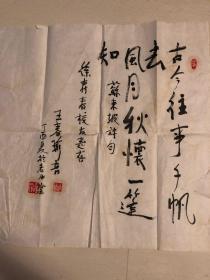 古今往事千帆
去
風月秋懷一篴
知
蘇東坡詩句
徐卉春校友惠存
王喜新書
丁酉夏於